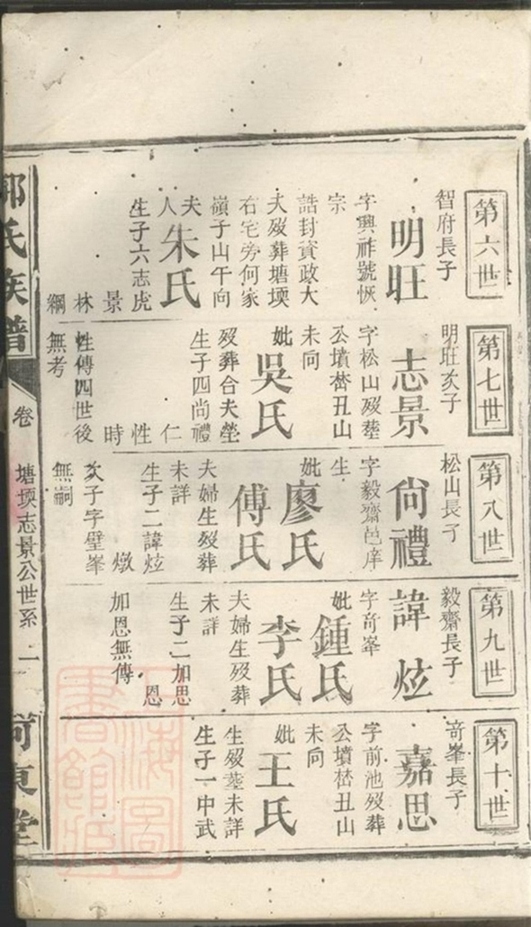 第六世
智府長子
明旺
字興祚號恢
宗
誥封資政大
夫歿葬塘堧
右宅旁何家
嶺子山午向
夫人朱氏
生子六志虎
景
林
綱
第七世
明旺次子
志景
字松山歿塟
公墳嵆丑山
未向
妣吳氏
歿葬合夫塋
生子四尚禮
仁
性
時
性傳四世後
無考
第八世
松山長子
尙禮
字毅齋邑庠
生
妣廖氏
傅氏
夫婦生歿葬
未詳
生子二諱炫
燉
次子字璧峯
無嗣
第九世
毅齋長子
諱炫
字竒峯
妣鍾氏
李氏
夫婦生歿葬
未詳
生子二加思
恩
加恩無傳
第十世
竒峯長子
嘉思
字前池歿葬
公墳嵆丑山
未向
妣王氏
生歿塟未詳
生子一中武
氏族譜
卷
塘堧志景公世系
二
河東堂